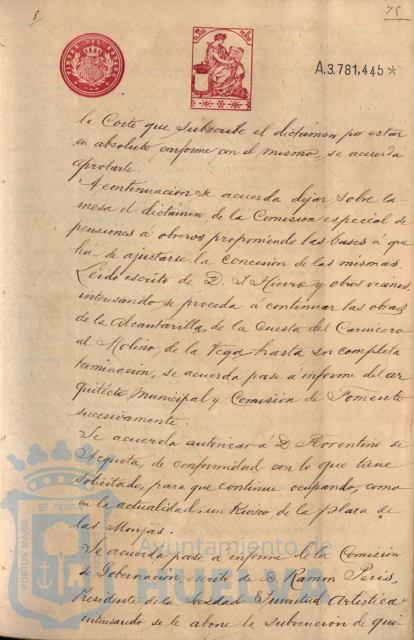 75
TIMBRE DEL ESTADO
A.3.781,445*
la Corte que subscribe el dictámen por estar
en absoluto conforme con el mismo, se acuerda
aprobarle.
A continuacion se acuerda dejar sobre la
mesa el dictamen de la Comision especial de
pensiones á obreros proponiendo las bases á que
ha de ajustarse la concesion de las mismas.
Leido escrito de D. J. Hierro y otros vecinos,
interesando se proceda á continuar las obras
de la Alcantarilla de la Cuesta del Carnicero
al Molino de la Vega hasta su completa
terminacion, se acuerda pase á informe del ar
quitecto Municipal y Comision de Fomento
sucesivamente.
Se acuerda autorizar á D. Florentino de
Azqueta, de conformidad con lo que tiene
solicitado, para que continue ocupando, como
en la actualidad, un Kiosco de la plaza de
las Monjas.
Se acuerda pase a informe de la Comision
de Gobernacion, escrito de D. Ramon Peris,
Presidente de la Sociedad Juventud Artística
interesando se le abone la subvencion de qui-
PORTUS MARIS ET TERRAE
Ayuntamiento de
HUELVA